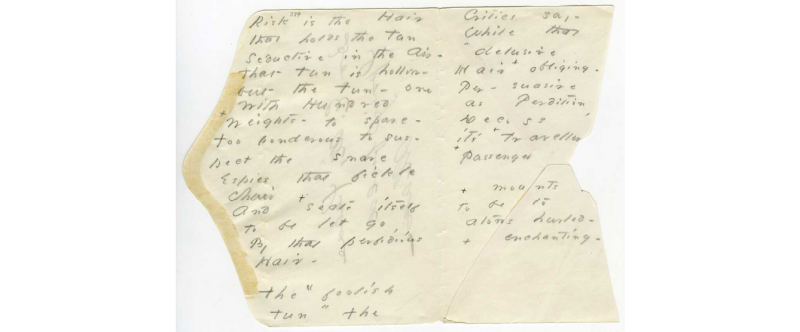 Risk is the Hair
that holds the Tun
Seductive in the Air -
That Tun is hollow -
but the Tun - one
With Hundred
+ Weights - to spare -
Too ponderous to sus-
pect the snare
Espies that fickle
chair +
And seats itself
to be let go
By that perfidious
Hair -
The "foolish
Tun" the
Critics say -
While that
"delusive
Hair + obliging -
Per - suasive
as Perdition,
Decoys
its + Traveller
+ Passenger
+ mounts
to be to
atoms hurled -
+ enchanting -